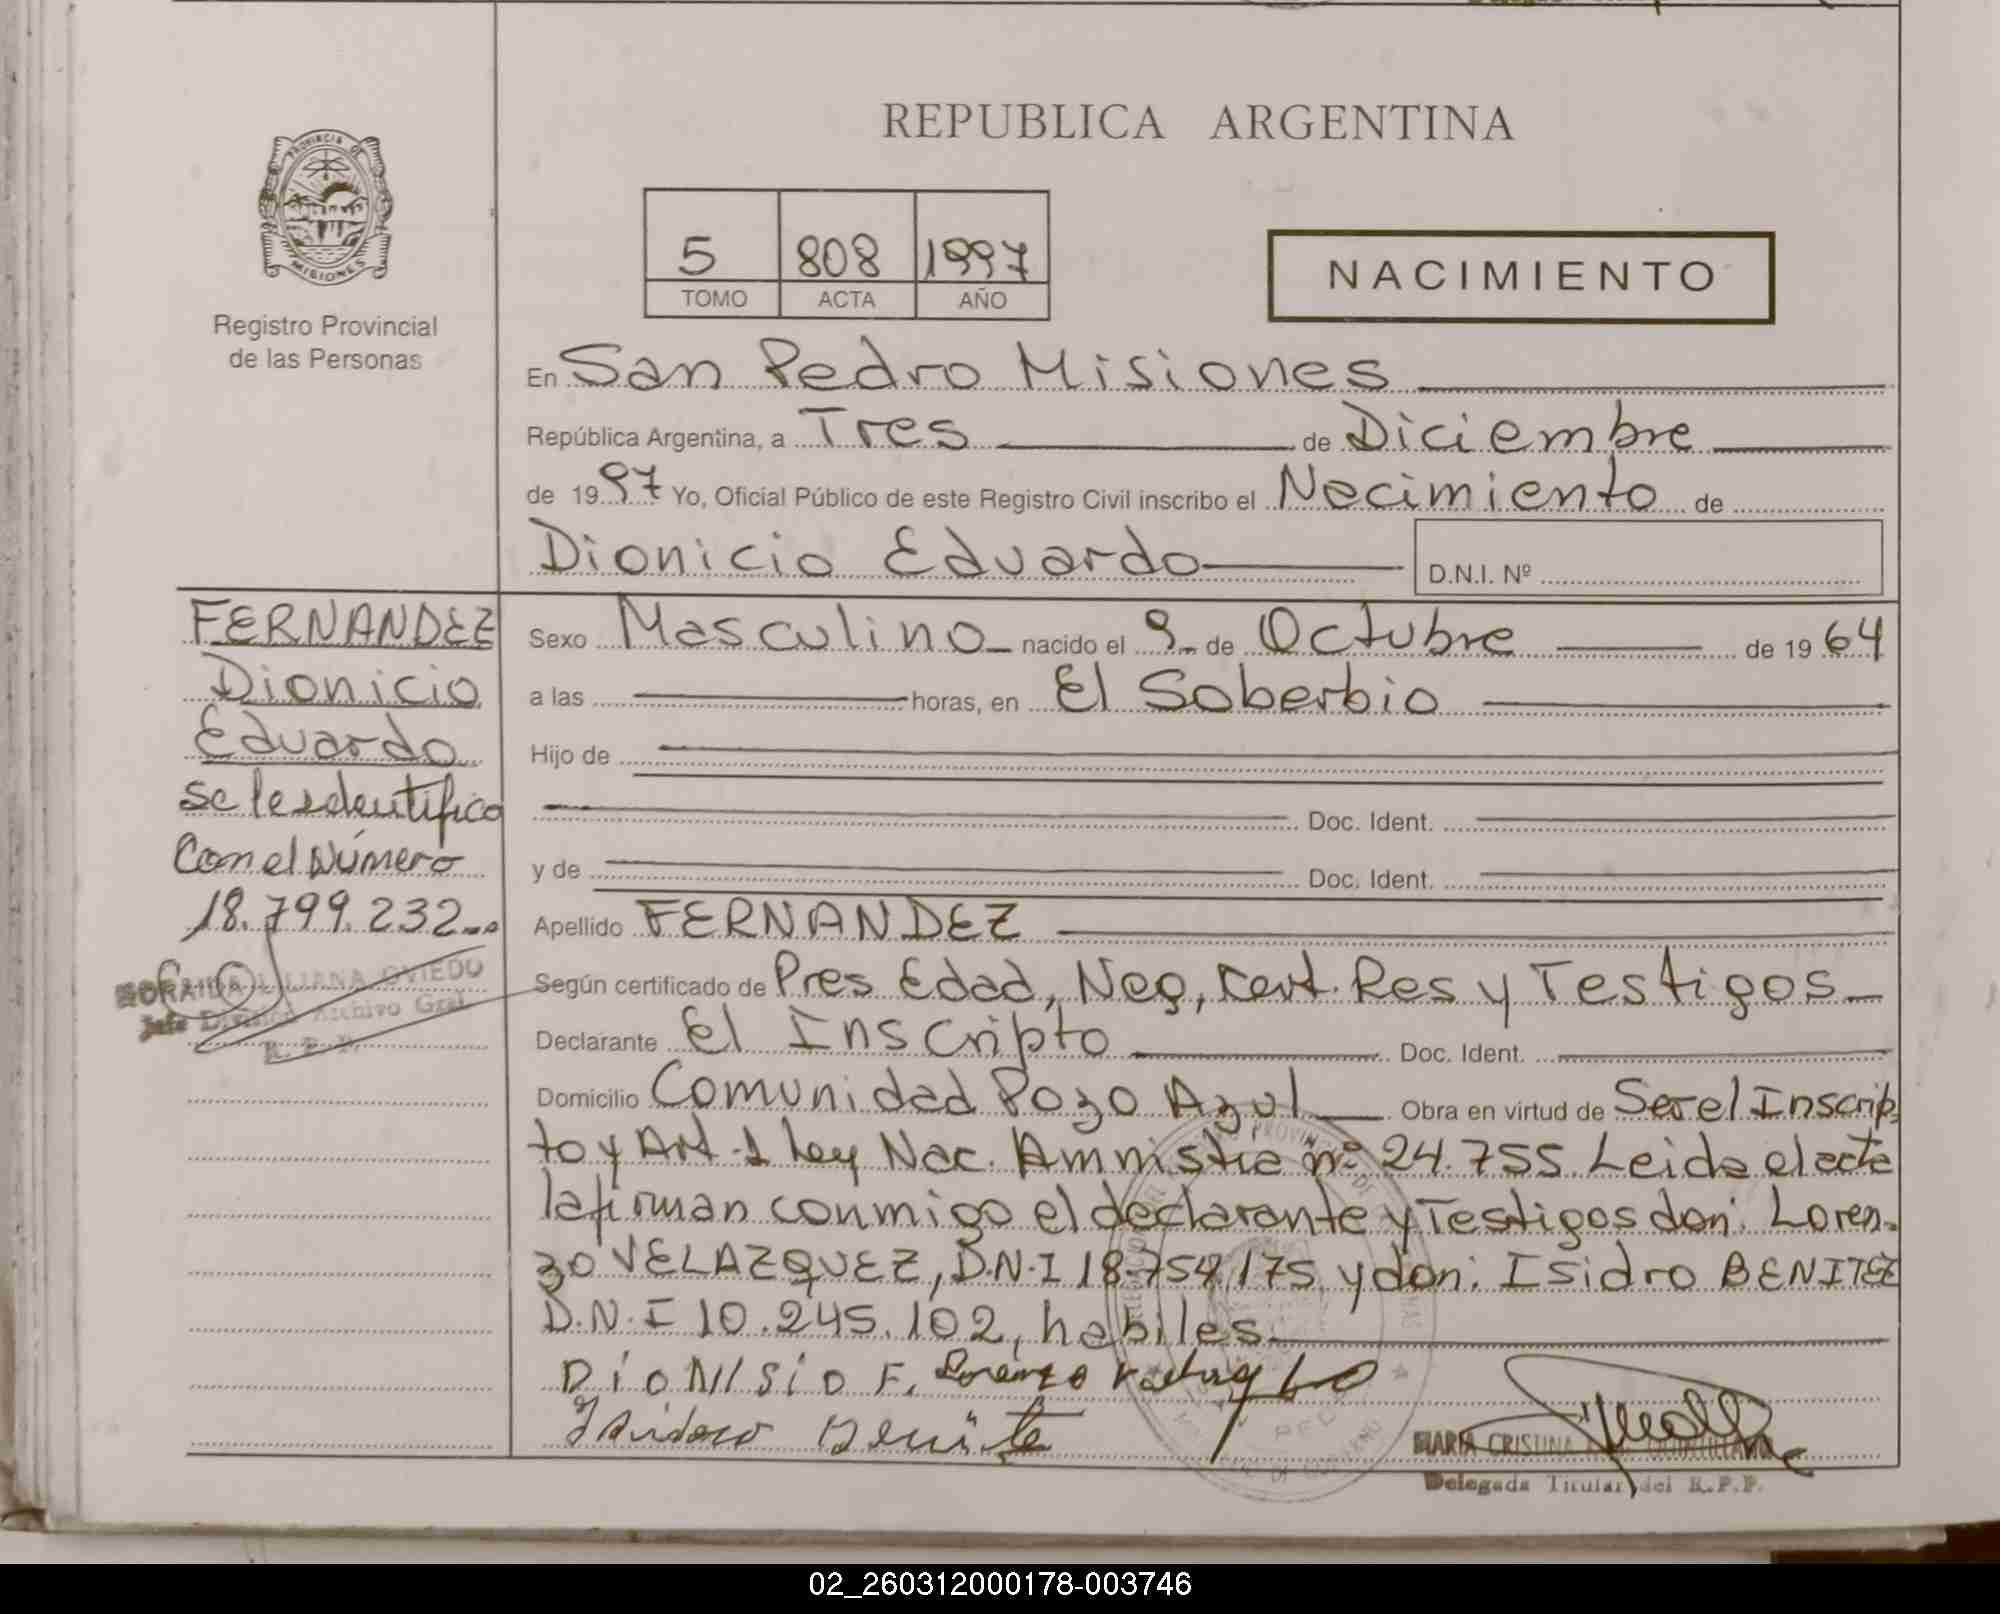 REPUBLICA ARGENTINA
PROVINCIA DE
MISIONES
Registro Provincial
de las Personas
5 808 1997
TOMO ACTA AÑO
NACIMIENTO
En San Pedro Misiones
República Argentina, a Tres de Diciembre
de 1997 Yo, Oficial Público de este Registro Civil inscribo el Nacimiento de
Dionicio Eduardo
D.N.I. Nº
FERNANDEZ
Dionicio
Eduardo
se le identifico
Con el Número
18.799.232
LILIANA OVIEDO
Jefe División Archivo Gral
R. P. P.
Sexo Masculino nacido el 9 de Octubre de 1964
a las horas, en El Soberbio
Hijo de
Doc. Ident.
y de Doc. Ident.
Apellido FERNANDEZ
Según certificado de Pres Edad, Neg, Cert. Res y Testigos
Declarante El Inscripto Doc. Ident.
Domicilio Comunidad Pozo Azul Obra en virtud de Ser el Inscrip
to y Art. 1 Ley Nac. Amnistia nº 24.755. Leida el acta
la firman conmigo el declarante y Testigos don: Loren-
zo VELAZQUEZ, D.N.I 18.759.175 y don: Isidro BENITEZ
D.N.I 10.245.102, habiles.
DioNisio F. Lorenzo
Benite
MARIA CRISTINA
Delegada Titular del R.P.P.
02_260312000178-003746